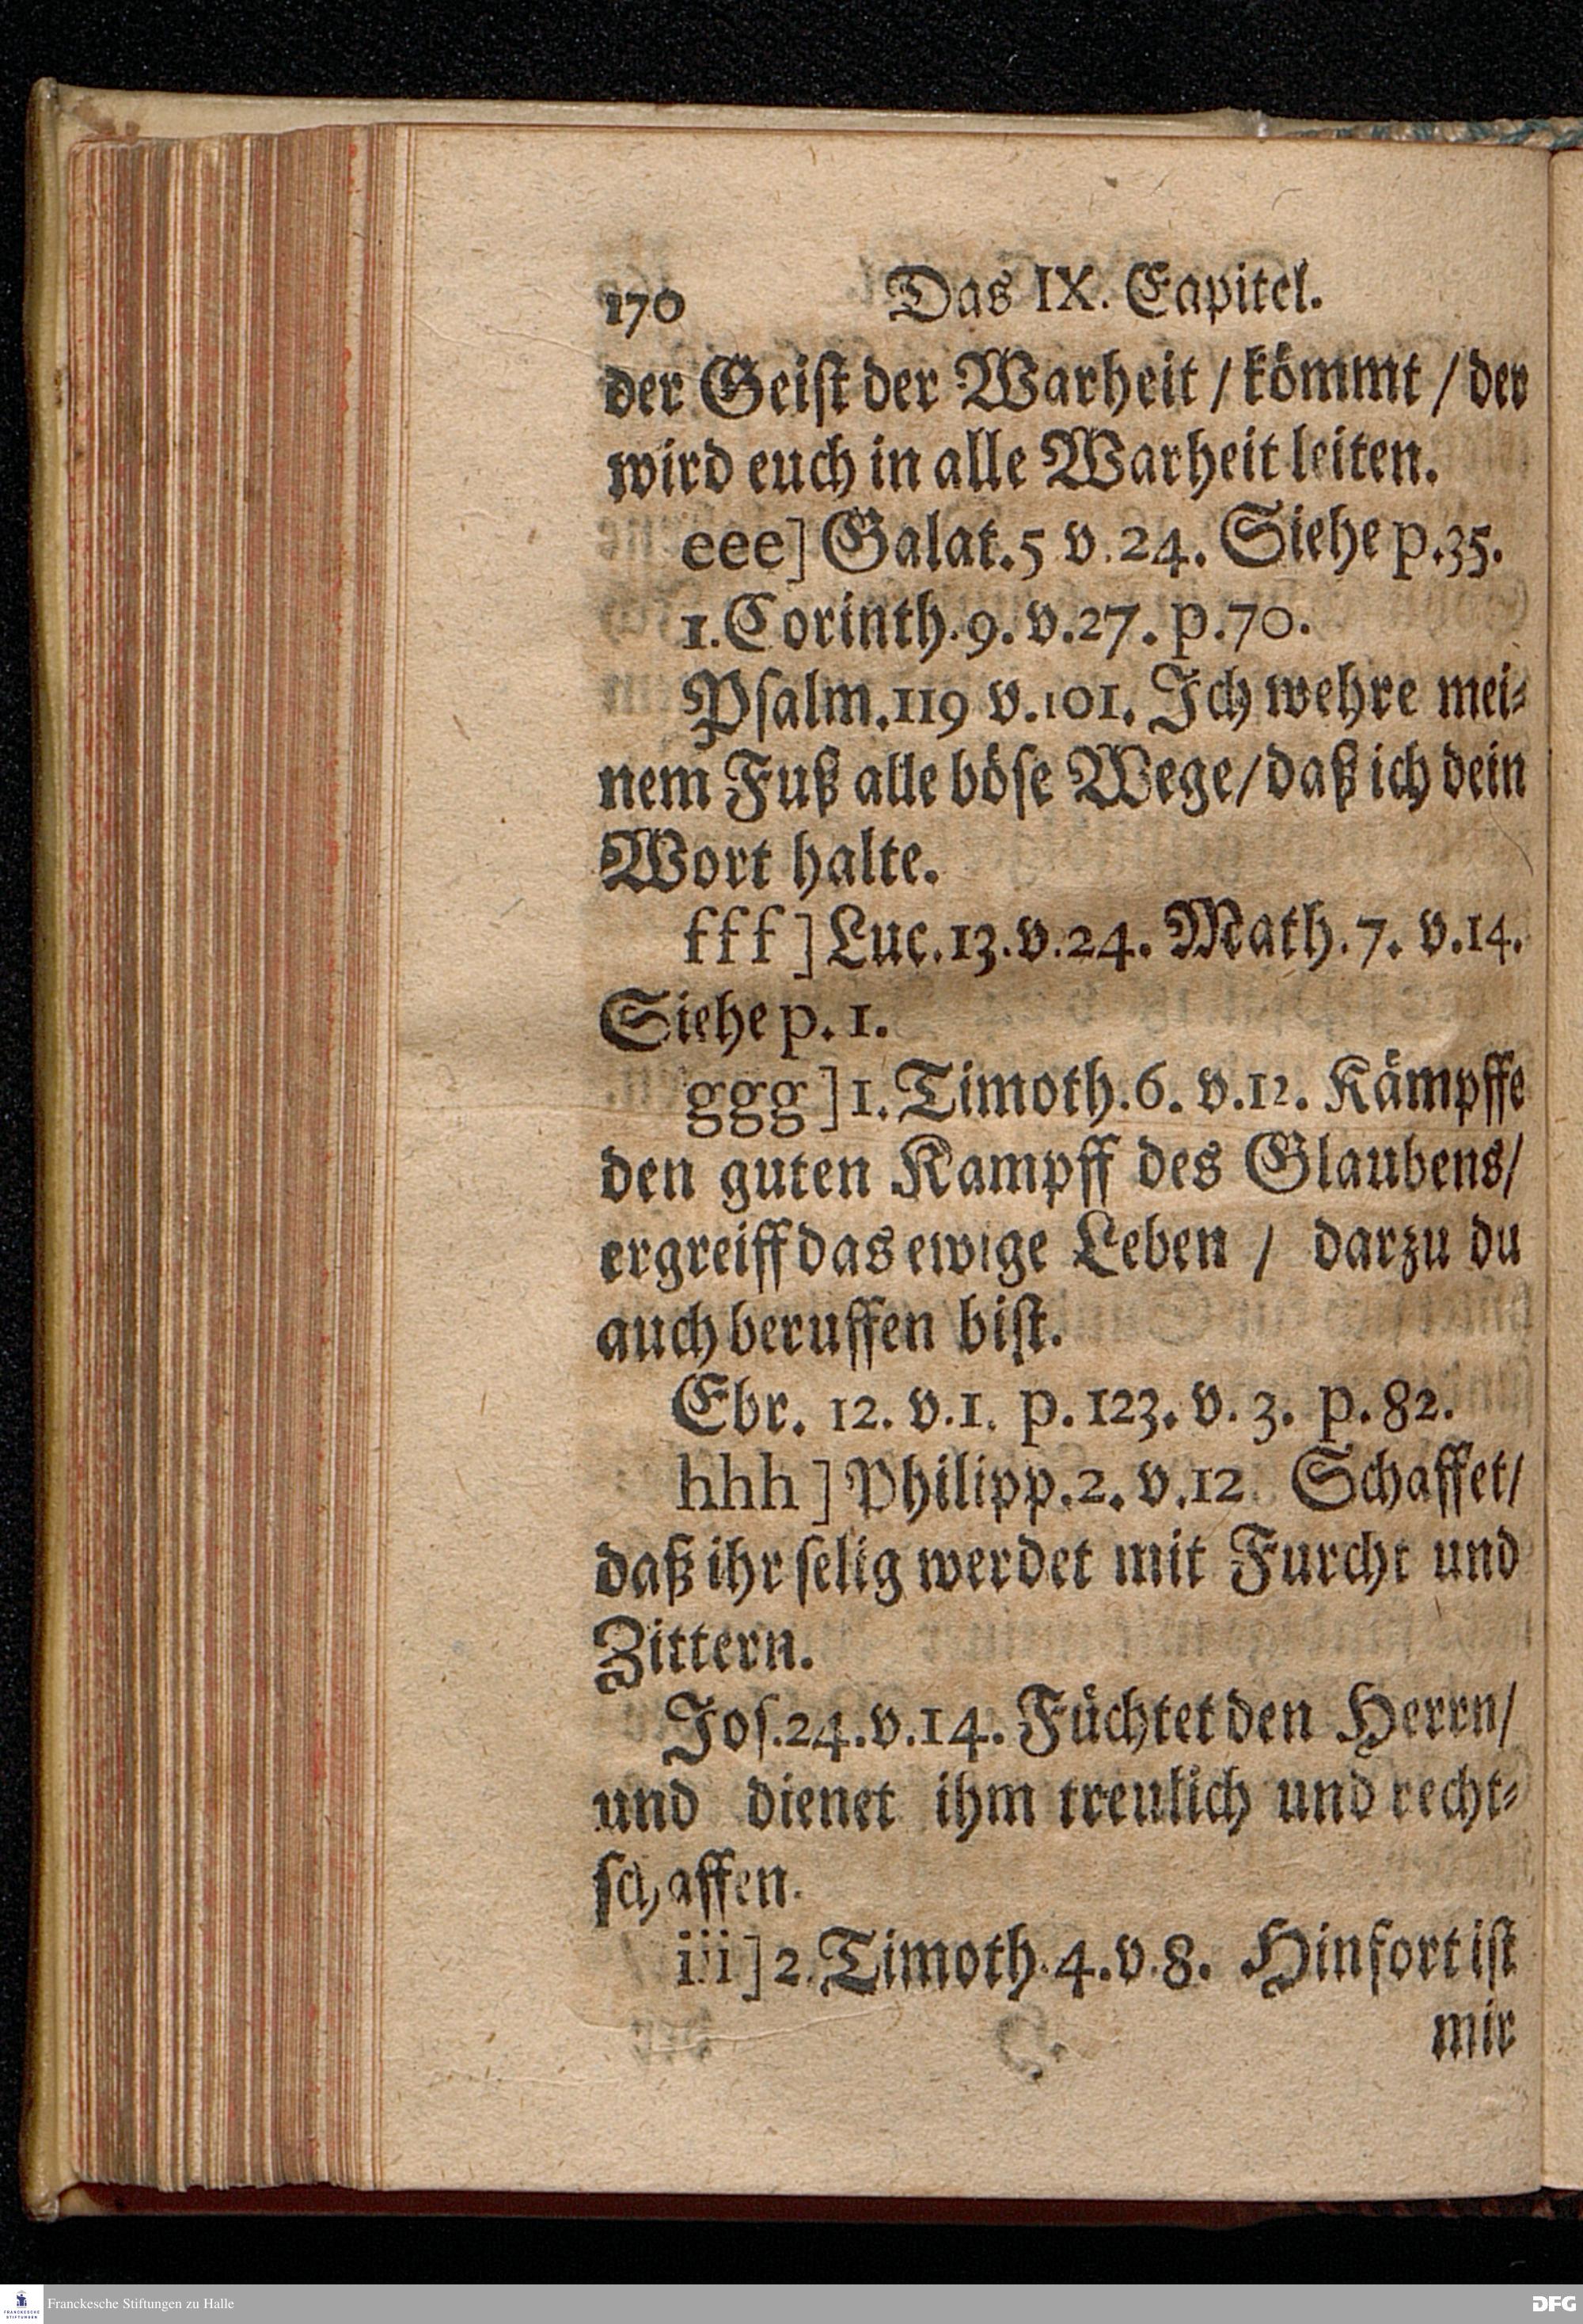 170 Das IX. Capitel.
der Geiſt der Warheit / kömmt / der
wird euch in alle Warheit leiten.
eee] Galat. 5 v. 24. Siehe p. 35.
1. Corinth. 9. v. 27. p. 70.
Pſalm. 119 v. 101. Ich wehre mei-
nem Fuß alle böſe Wege / daß ich dein
Wort halte.
fff] Luc. 13. v. 24. Math. 7. v. 14.
Siehe p. 1.
ggg] 1. Timoth. 6. v. 12. Kämpffe
den guten Kampff des Glaubens /
ergreiff das ewige Leben / darzu du
auch beruffen biſt.
Ebr. 12. v. 1. p. 123. v. 3. p. 82.
hhh] Philipp. 2. v. 12. Schaffet /
daß ihr ſelig werdet mit Furcht und
Zittern.
Joſ. 24. v. 14. Füchtet den Herrn /
und dienet ihm treulich und recht-
ſchaffen.
iii] 2. Timoth. 4. v. 8. Hinfort iſt
mir
FRANCKESCHE STIFTUNGEN
Franckesche Stiftungen zu Halle
DFG